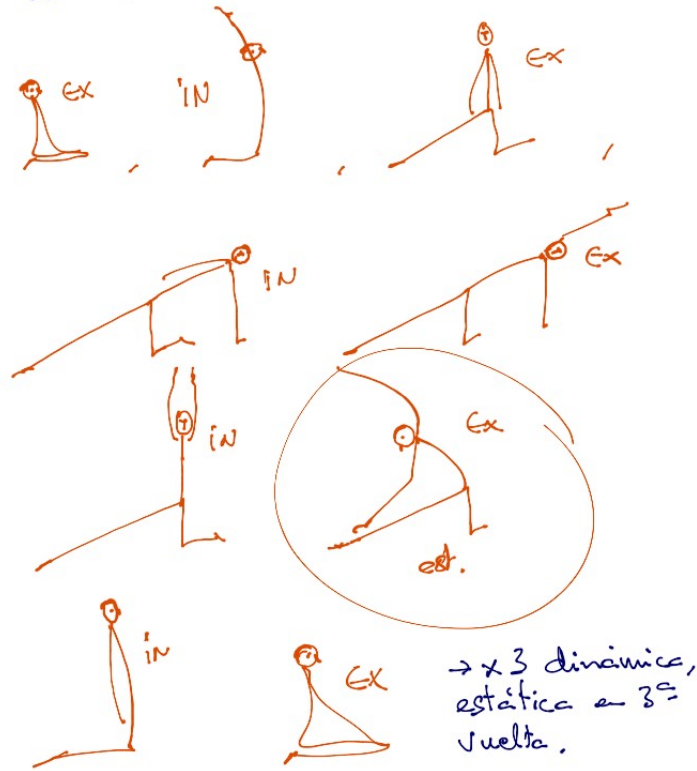 EX
iN
EX
iN
EX
iN
EX
est.
iN
EX
→ x 3 dinámica,
estática en 3ª
vuelta.